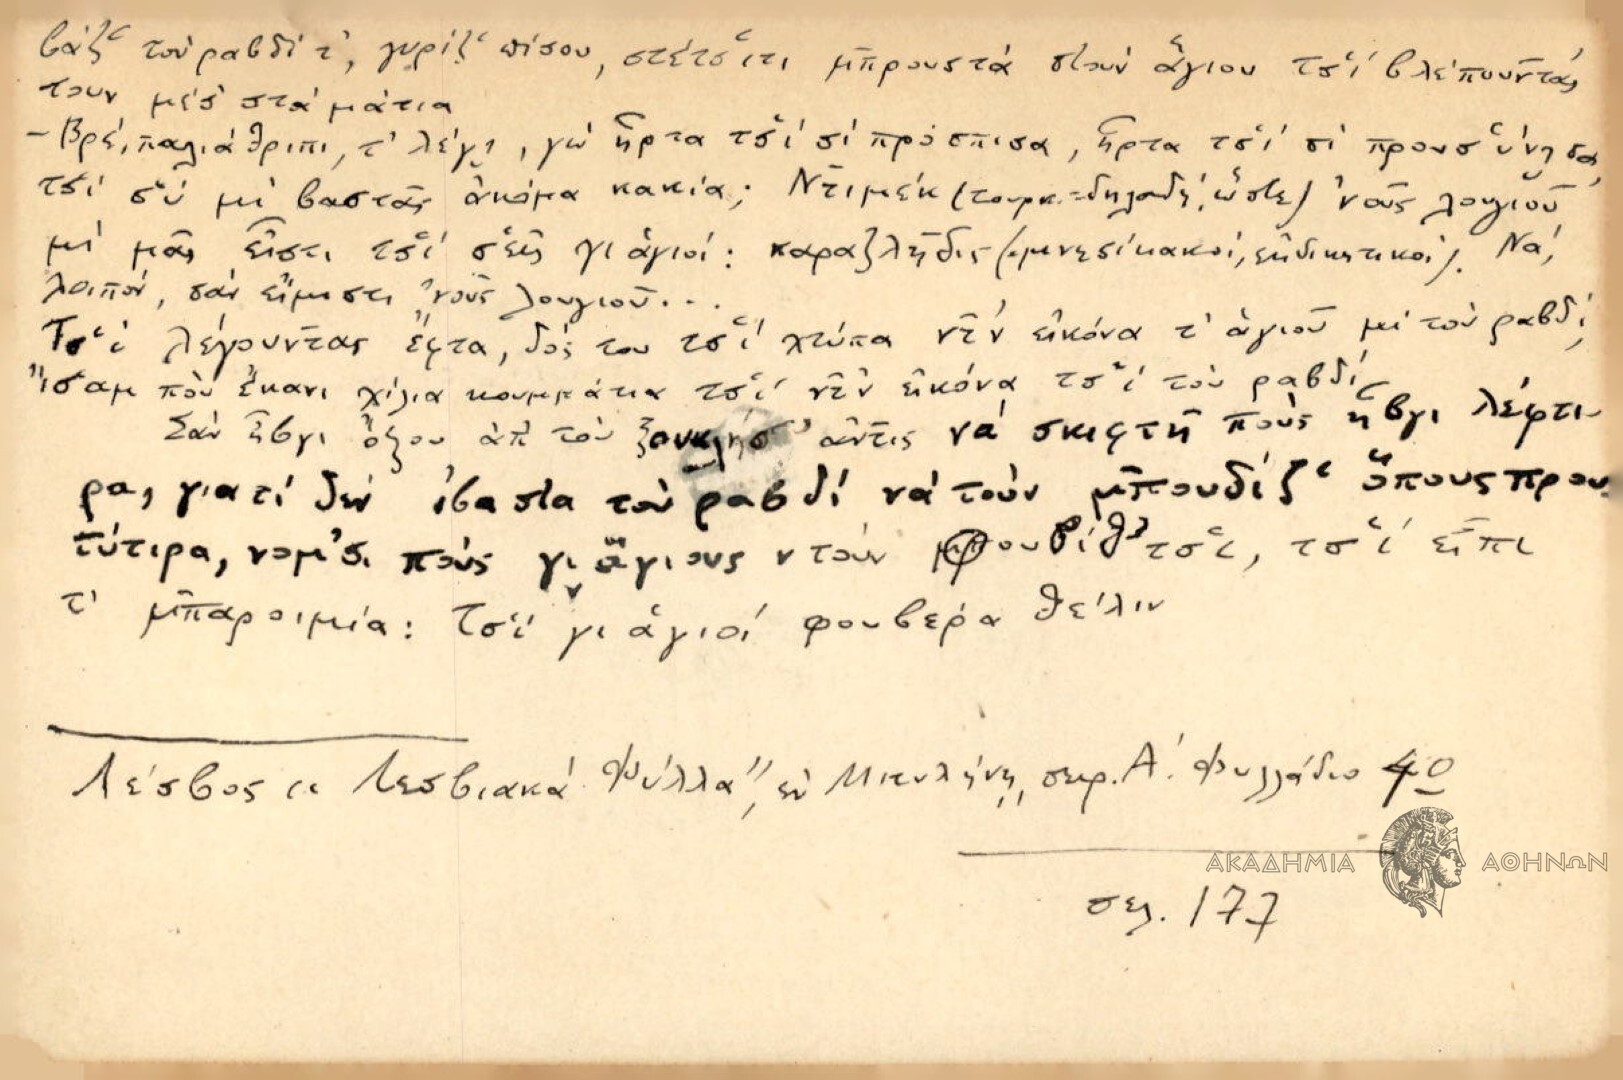 βάζ' τοὺ ραβδί τ', γυρίζ' πίσου, στέτσ̌ιτι μπρουστά στοὺν ἅγιου τσ̌ί βλέπουντάς
τουν μέσ' στά μάτια
- Βρέ, παλιάθριπι, τ' λέγ', γώ ἦρτα τσ̌ί σί πρόσπισα, ἦρτα τσ̌ί σί προυσ̌ύνησα,
τσ̌ί σ̌ύ μί βαστᾶς ἀκόμα κακία; Ντιμέκ (τουρκ.=δηλαδή, ὥστε) 'νοῦς λουγιοῦ
μί μᾶς εἶστι τσ̌ί σ̌εῖς γι ἁγιοί: καραζλῆδις (μνησίκακοι, ἐκδικητικοί). Νά,
λοιπόν, σάν εἴμιστι 'νοῦς λουγιοῦ...
Τσ̌ί λέγουντας ἔφτα, δός του τσ̌ί χτύπα ντ'ν εἰκόνα τ' ἁγιοῦ μί τοὺ ραβδί,
ἴσαμ ποὺ ἔκανι χίλια κουμμάτια τσ̌ί ντ'ν εἰκόνα τσ̌ί τοὺ ραβδί.
Σάν ἦβγι ὄξου ἀπ' τοὺ ξουκλήσ' ἀντίς νά σκιφτῆ πούς ἦβγι λέφτι-
ρα, γιατί δέν ἐβάστα τοὺ ραβδί νά τοὺν μπουδίζ' ὅπους πρου-
τύτιρα, νόμ'σι πούς γι ἅγιους ντοὺν φουβίθ'τσ̌ι, τσ̌ί εἶπι
τ' μπαροιμία: Τσ̌ί γι ἁγιοί φουβέρα θέλιν
Λέσβος „Λεσβιακά Φύλλα" ἐν Μιτυλήνῃ, σειρ. Α΄. Φυλλάδιο 4ο
σελ. 177
ΑΚΑΔΗΜΙΑ ΑΘΗΝΩΝ